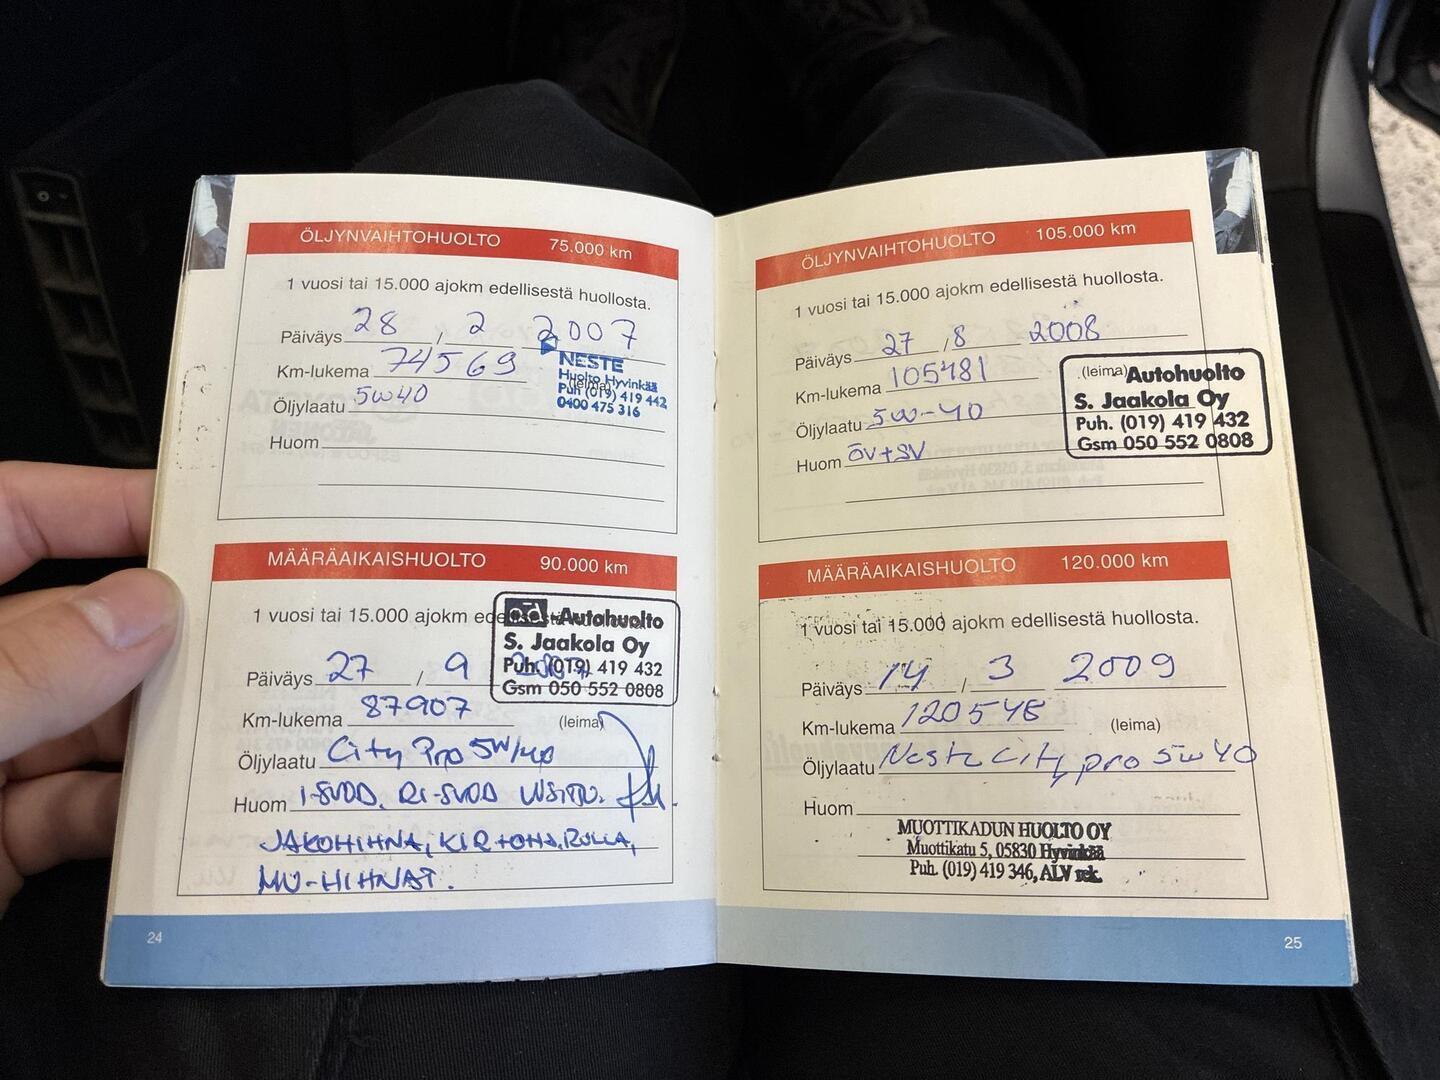 ÖLJYNVAIHTOHUOLTO 75.000 km
1 vuosi tai 15.000 ajokm edellisestä huollosta.
Päiväys 28 / 2 2007
Km-lukema 74569
(leima)
NESTE
Huolto Hyvinkää
Puh (019) 419 442
0400 475 316
Öljylaatu 5w40
Huom
MÄÄRÄAIKAISHUOLTO 90.000 km
1 vuosi tai 15.000 ajokm edellisestä
ad -Autohuolto
S. Jaakola Oy
Puh. (019) 419 432
Gsm 050 552 0808
Päiväys 27 / 9 2007
Km-lukema 87907 (leima)
Öljylaatu City Pro 5W/40
Huom
JAKOHIHNA,
MU-HIHNAT.
24
ÖLJYNVAIHTOHUOLTO 105.000 km
1 vuosi tai 15.000 ajokm edellisestä huollosta.
Päiväys 27 / 8 2008
Km-lukema 105481
(leima) Autohuolto
S. Jaakola Oy
Puh. (019) 419 432
Gsm 050 552 0808
Öljylaatu 5w-40
Huom ÖV+SV
MÄÄRÄAIKAISHUOLTO 120.000 km
1 vuosi tai 15.000 ajokm edellisestä huollosta.
Päiväys 14 / 3 2009
Km-lukema 120548 (leima)
Öljylaatu Neste City pro 5w40
Huom
MUOTTIKADUN HUOLTO OY
Muottikatu 5, 05830 Hyvinkää
Puh. (019) 419 346, ALV rek.
25